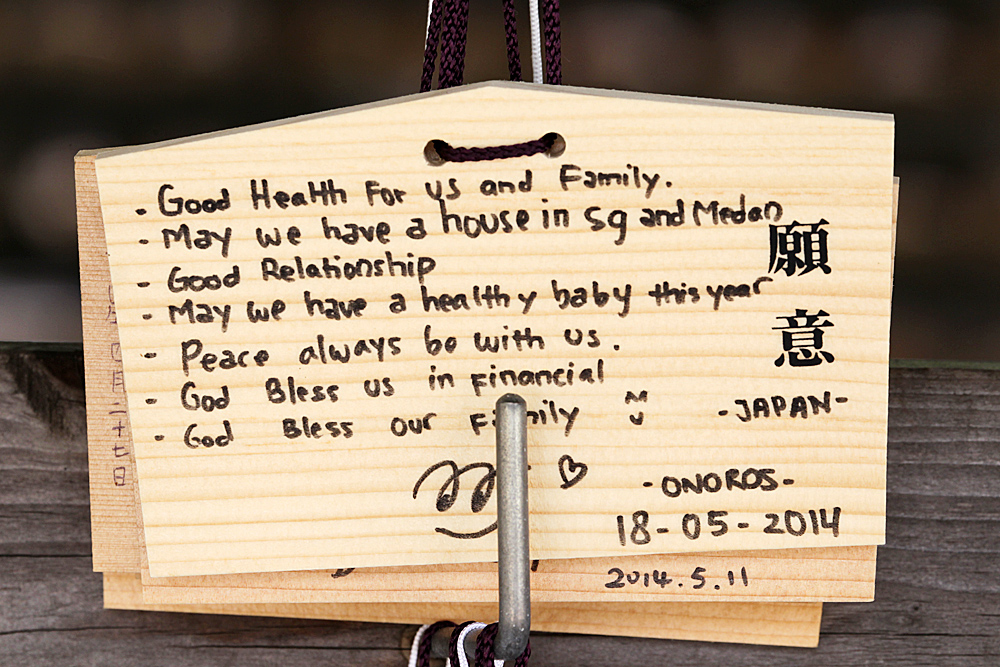 - Good Health For us and Family.
- May we have a house in Sg and Medan
- Good Relationship
- May we have a healthy baby this year
- Peace always be with us.
- God Bless us in financial
- God Bless our Family
願意
- JAPAN -
- ONOROS -
18-05-2014
2014.5.11
四月二十七日